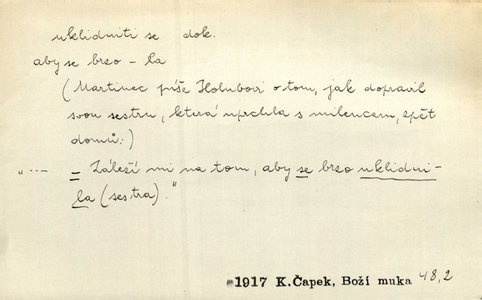 uklidniti se dok.
aby se brzo – la
(Martinec píše Holubovi o tom, jak dopravil
svou sestru, která uprchla s milencem, zpět
domů:)
"... = Záleží mi na tom, aby se brzo uklidni-
la (sestra)."
1917 K.Čapek, Boží muka 48,2